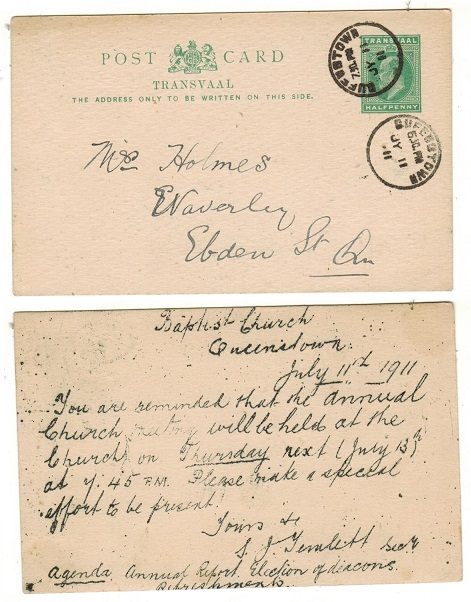 POST CARD
TRANSVAAL
THE ADDRESS ONLY TO BE WRITTEN ON THIS SIDE.
TRANSVAAL
HALFPENNY
QUEENSTOWN
JY 11
11
QUEENSTOWN
JY 11
11
Mrs Holmes
Waverley
Ebden St. Qn
Baptist Church
Queenstown
July 11th 1911
You are reminded that the annual
Church meeting will be held at the
Church on Thursday next (July 13th)
at 7.45 P.M. Please make a special
effort to be present.
Yours &
S. J. Temlett Secy
Agenda Annual Report. Election of deacons.
Refreshments